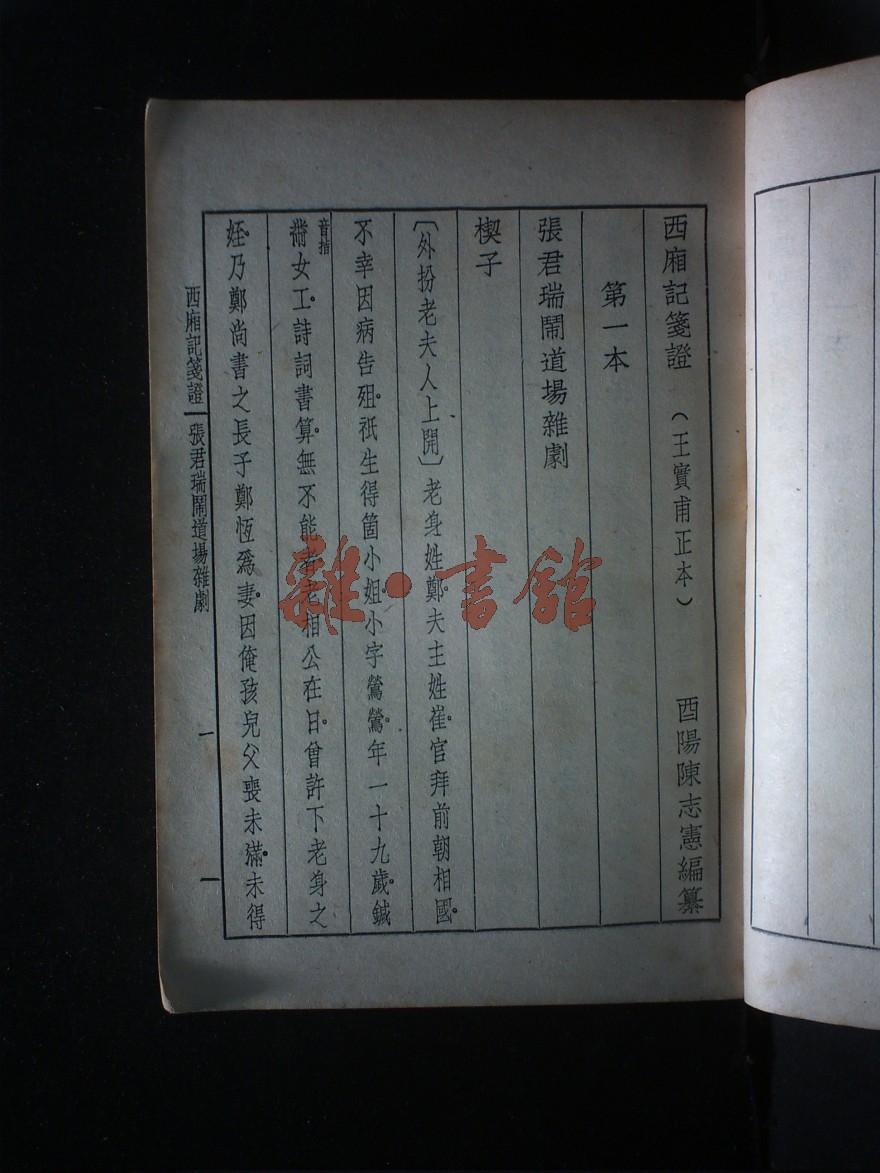 西廂記箋證 （王實甫正本） 酉陽陳志憲編纂
第一本
張君瑞鬧道場雜劇
楔子
〔外扮老夫人上開〕老身姓鄭。夫主姓崔。官拜前朝相國。
不幸因病告殂。祇生得箇小姐。小字鶯鶯。年一十九歲。鍼
音指
黹女工。詩詞書算。無不能者。老相公在日。曾許下老身之
姪。乃鄭尚書之長子鄭恆爲妻。因俺孩兒父喪未滿。未得
西廂記箋證 張君瑞鬧道場雜劇 一 一
雜·書館